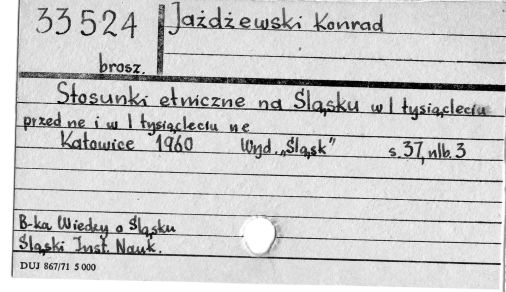 33524
Jażdżewski Konrad
brosz.
Stosunki etniczne na Śląsku w I tysiącleciu
przed ne i w I tysiącleciu ne
Katowice 1960 Wyd. „Śląsk” s. 37, nlb. 3
B-ka Wiedzy o Śląsku
Śląski Inst. Nauk.
DUJ 867/71 5 000